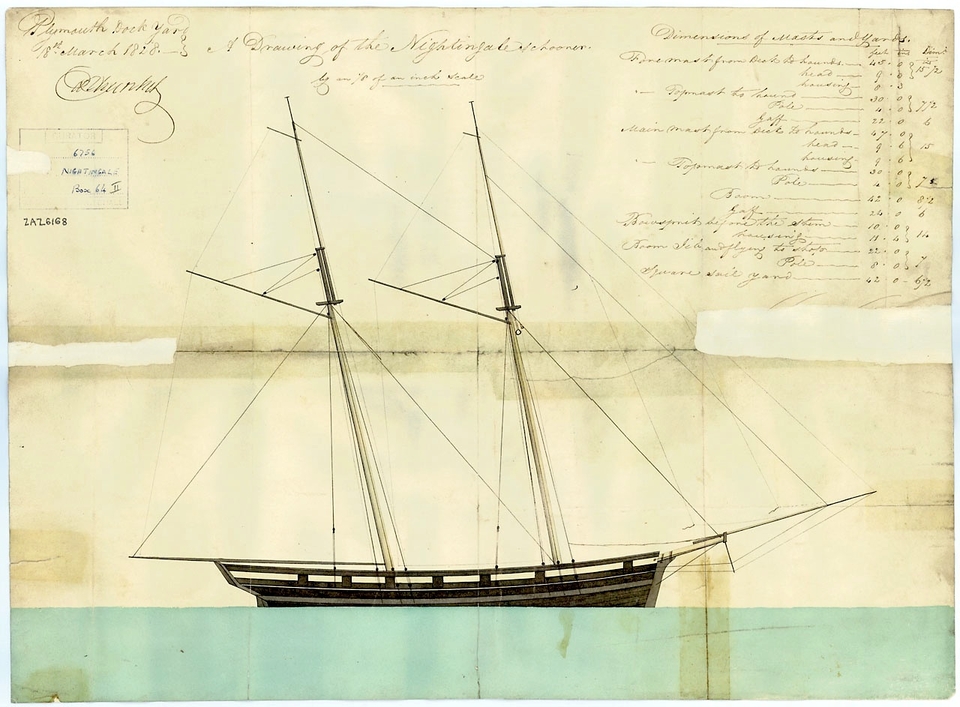 Plymouth Dock Yard
8th March 1828
A Drawing of the Nightingale schooner.
by an 1/8 of an inch scale
6756
NIGHTINGALE
Box 64 II
ZAZ6168
Dimensions of Masts and Yards.
Fore mast from Deck to hounds 45 0
head 9 0 15 1/2
housing 8
Topmast to hound 30 0
Pole 4 0 7 1/2
Gaff 22 0 6
Main mast from Deck to hounds 47 0
head 9 6 15
housing 9 6
Topmast to hounds 30 0
Pole 4 0 7
Boom 42 0 8 1/2
Gaff 24 0 6
Bowsprit before the Stem 10 0
housing 11 4 14
Boom Jib and flying to stop 22 0
Pole 8 0 7
Square sail yard 42 0 6 1/2